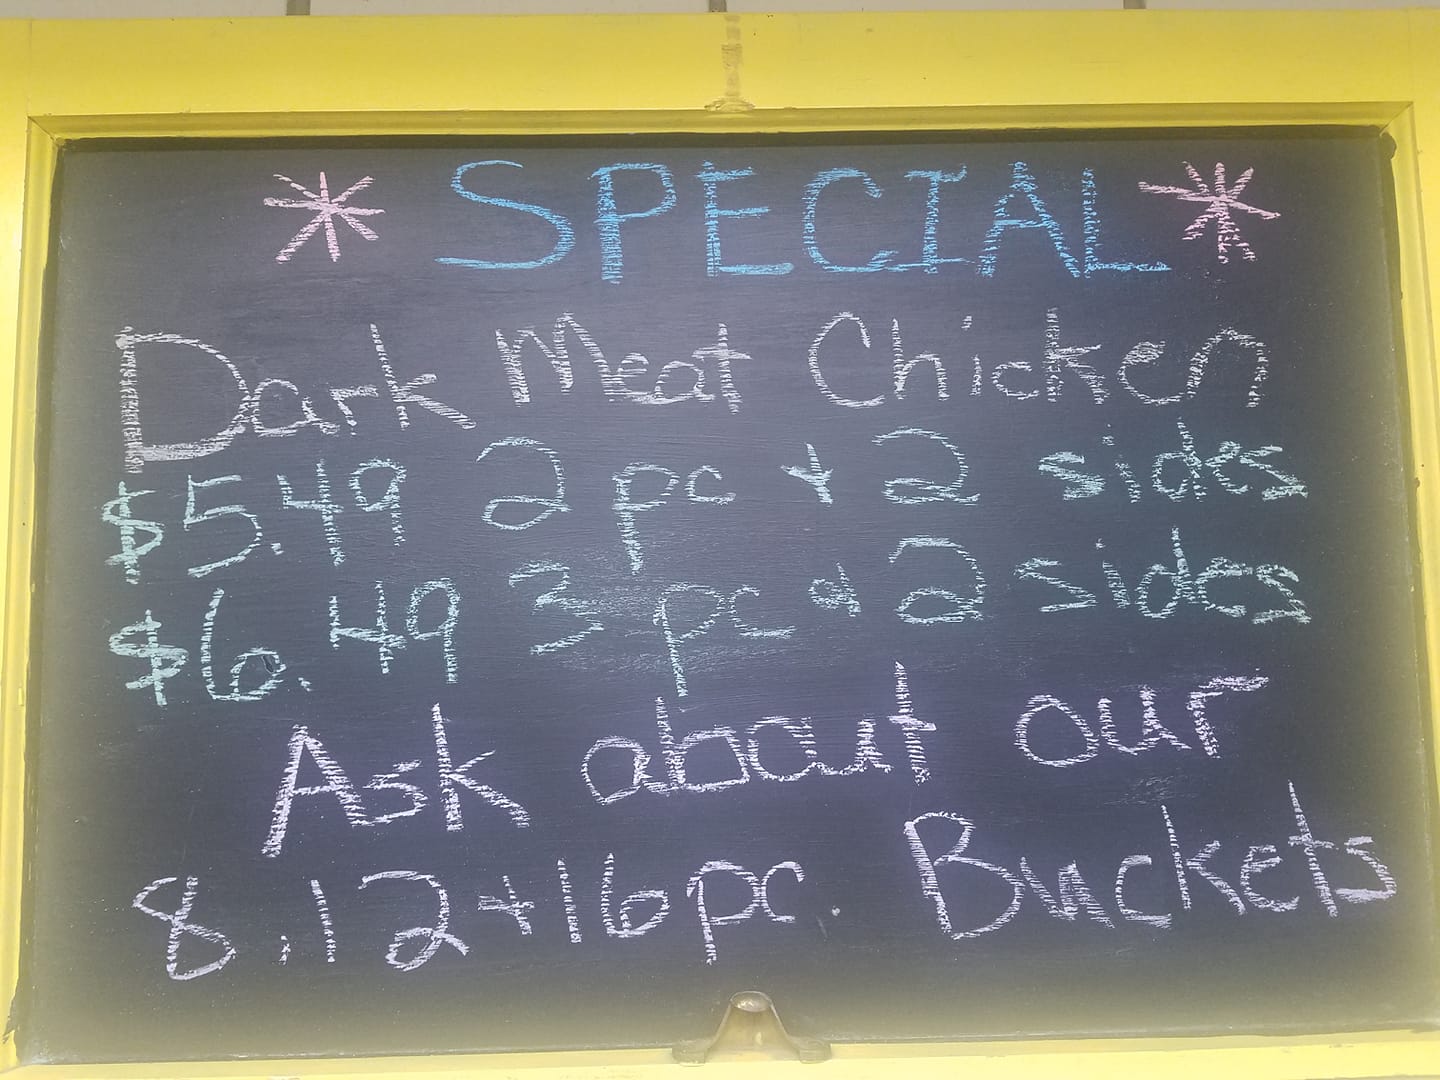 * SPECIAL *
Dark Meat Chicken
$5.49 2 pc & 2 sides
$6.49 3 pc & 2 sides
Ask about our
8, 12 + 16 pc. Buckets